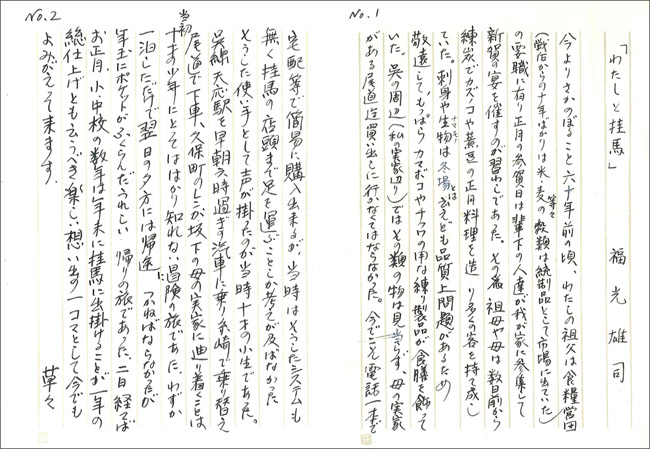 No.1
「わたしと桂馬」　福光雄司
今よりさかのぼること六十年前の頃、わたしの祖父は食糧営団
(戦后からの十年ばかりは米・麦等々の穀類は統制品として市場に出ていた)
の要職に有り正月の参賀日は輩下の人達が我が家に参集して
新賀の宴を催すのが習わしであった。その為祖母や母は数日前から
練炭でカズノコや煮豆の正月料理を造り多くの客を持て成し
ていた。刺身や生物は冬場とはいえども品質上問題があるため
ナマモノ
敬遠して、もっぱらカマボコやチクワの用な練り製品が食膳を飾って
いた。呉の周辺(私の実家辺り)ではその類の物は見当らず、母の実家
がある尾道迄買い出しに行かなくてはならなかった。今でこそ電話一本で
No.2
宅配等で簡易に購入出来るが、当時はそうしたシステムも
無く桂馬の店頭まで足を運ぶことしか考えが及ばなかった
そうした使い手として声が掛ったのが当時十才の小生であった。
呉線天応駅を早朝六時過ぎの汽車に乗り糸崎で乗り替え
尾道で下車、久保町のレンガ坂下の母の実家に辿り着くことは
当時十才の少年にとってははかり知れない冒険の旅であた、わずか
一泊しただけで翌日の夕方には帰途につかねばならなかったが
年玉にポケットがふくらんだうれしい帰りの旅であった、二日経てば
お正月、小中校の数年は年末に桂馬に出掛けることが一年の
総仕上げとも云うべき楽しい想い出の一コマとして今でも
よみがえって来ます。
草々